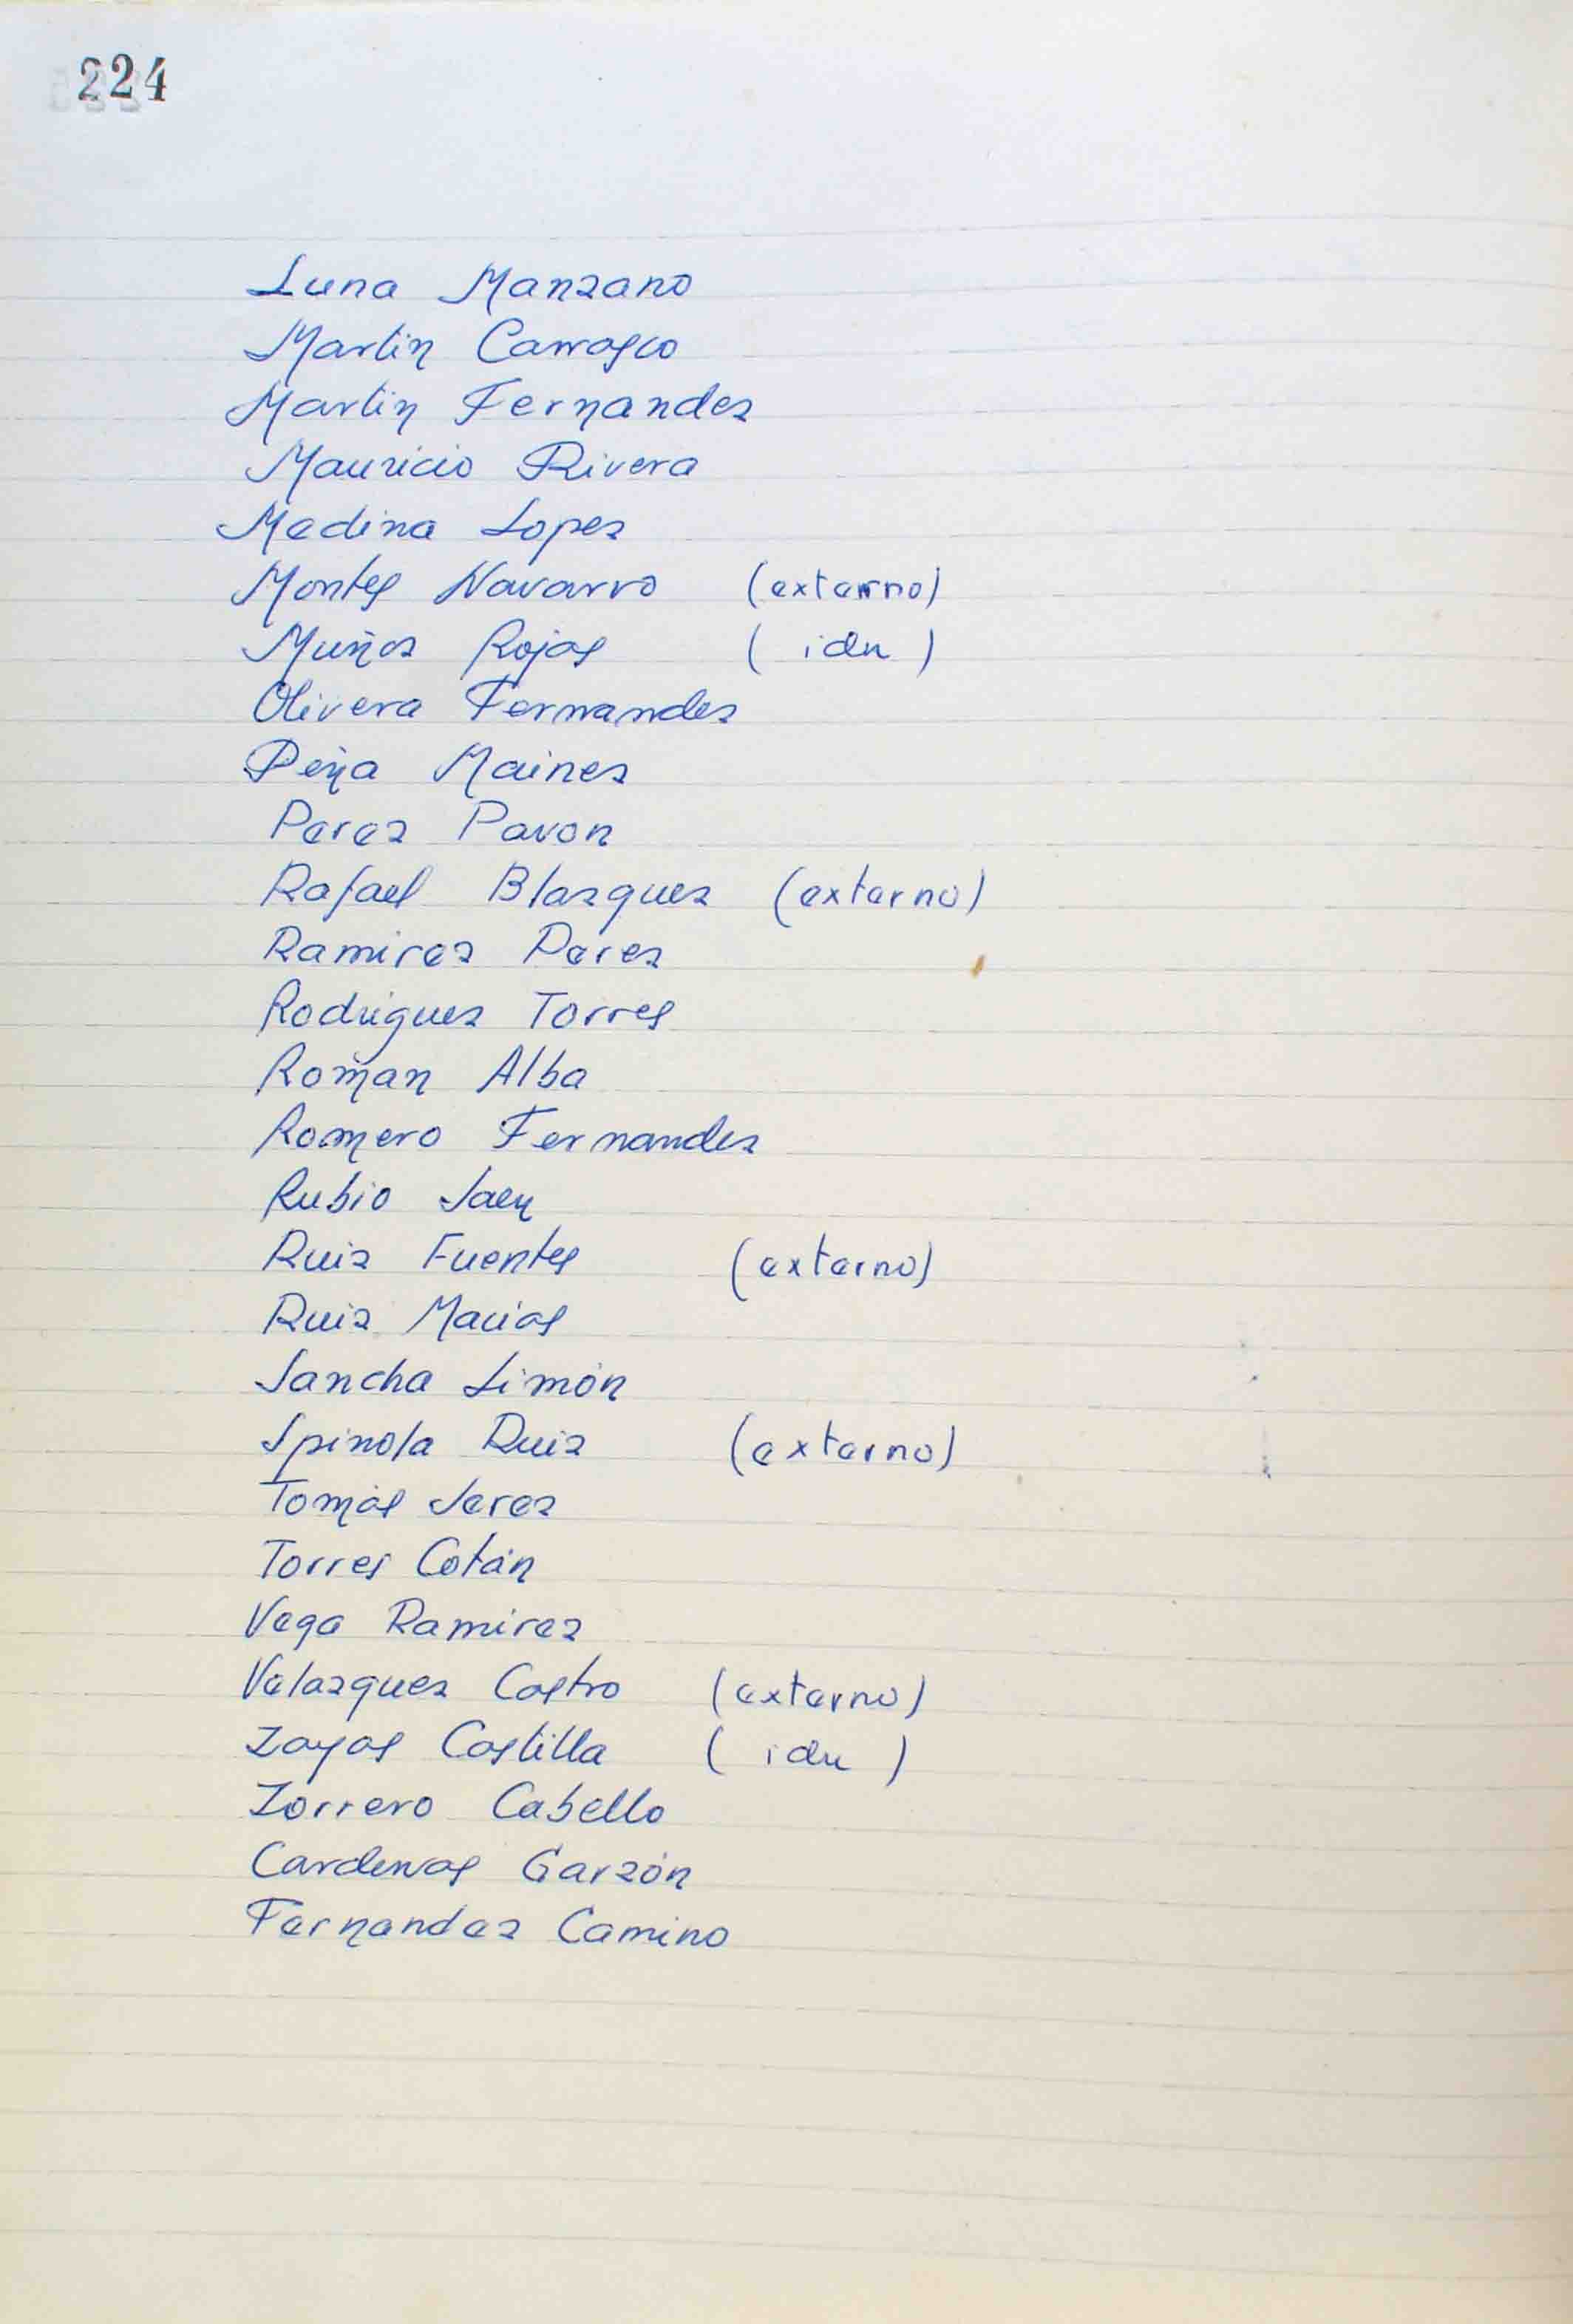 224
Luna Manzano
Martin Carrasco
Martin Fernandez
Mauricio Rivera
Medina Lopez
Montes Navarro (externo)
Muñoz Rojas ( idm )
Olivera Fernandez
Peña Mainez
Perez Pavon
Rafael Blazquez (externo)
Ramirez Perez
Rodriguez Torres
Roman Alba
Romero Fernandez
Rubio Jaen
Ruiz Fuentes (externo)
Ruiz Macias
Sancha Limón
Spinola Ruiz (externo)
Tomás Jerez
Torres Cotán
Vega Ramirez
Velazquez Castro (externo)
Zayas Costilla ( idm )
Zorrero Cabello
Cardenas Garzón
Fernandez Camino